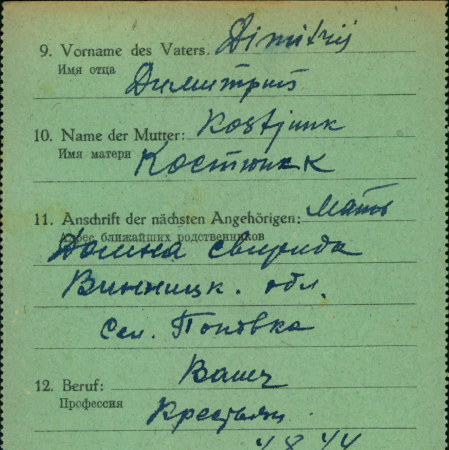 9. Vorname des Vaters. Dimitrij
Имя отца
Димитрий
10. Name der Mutter: Kostjunk
Имя матери
Костюнк
11. Anschrift der nächsten Angehörigen: Мать
Адрес ближайших родственников
свирида
Винницк. обл.
Сел. Поповка
12. Beruf: Bauer
Профессия
Крестьян.